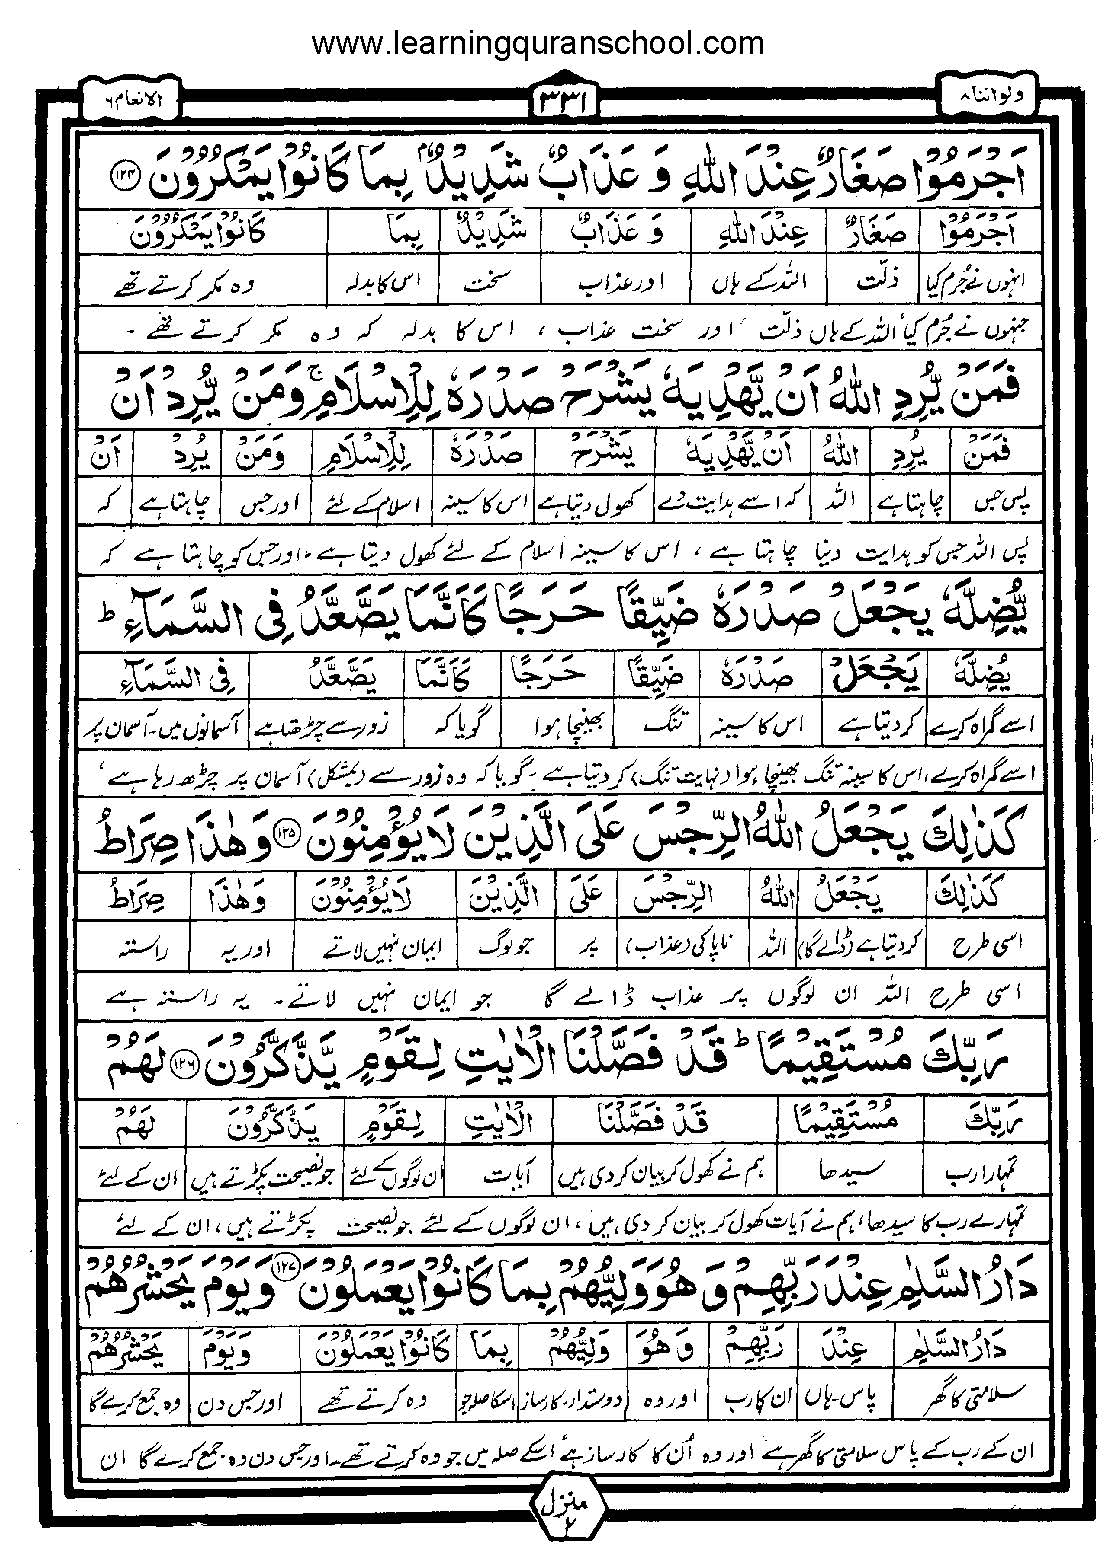 www.learningquranschool.com
ولواننا ۸
۳۳۱
الانعام ۶
اَجْرَمُوْا صَغَارٌ عِنْدَ اللّٰهِ وَ عَذَابٌ شَدِیْدٌۢ بِمَا كَانُوْا یَمْكُرُوْنَ ۱۲۴
اَجْرَمُوْا صَغَارٌ عِنْدَ اللّٰهِ وَ عَذَابٌ شَدِیْدٌ بِمَا كَانُوْا یَمْكُرُوْنَ
انہوں نے جُرم کیا ذلّت اللہ کے ہاں اور عذاب سخت اس کا بدلہ وہ مکر کرتے تھے
جنہوں نے جُرم کیا، اللہ کے ہاں ذلّت اور سخت عذاب ، اس کا بدلہ کہ وہ مکر کرتے تھے ۔
فَمَنْ یُّرِدِ اللّٰهُ اَنْ یَّهْدِیَهٗ یَشْرَحْ صَدْرَهٗ لِلْاِسْلَامِ ۚ وَمَنْ یُّرِدْ اَنْ
فَمَنْ یُّرِدِ اللّٰهُ اَنْ یَّهْدِیَهٗ یَشْرَحْ صَدْرَهٗ لِلْاِسْلَامِ وَمَنْ یُّرِدْ اَنْ
پس جس چاہتا ہے اللہ کہ اسے ہدایت دے کھول دیتا ہے اس کا سینہ اسلام کے لئے اور جس چاہتا ہے کہ
پس اللہ جس کو ہدایت دینا چاہتا ہے ، اس کا سینہ اسلام کے لئے کھول دیتا ہے ۔ اور جس کو چاہتا ہے کہ
یُّضِلَّهٗ یَجْعَلْ صَدْرَهٗ ضَیِّقًا حَرَجًا كَاَنَّمَا یَصَّعَّدُ فِی السَّمَآءِ ؕ
یُضِلَّهٗ یَجْعَلْ صَدْرَهٗ ضَیِّقًا حَرَجًا كَاَنَّمَا یَصَّعَّدُ فِی السَّمَآءِ
اسے گمراہ کرے کر دیتا ہے اس کا سینہ تنگ بھینچا ہوا گویا کہ زور سے چڑھتا ہے آسمانوں میں۔ آسمان پر
اسے گمراہ کرے، اس کا سینہ تنگ بھینچا ہوا (نہایت تنگ) کر دیتا ہے ۔ گویا کہ وہ زور سے (بمشکل) آسمان پر چڑھ رہا ہے ،
كَذٰلِكَ یَجْعَلُ اللّٰهُ الرِّجْسَ عَلَى الَّذِیْنَ لَا یُؤْمِنُوْنَ ۱۲۵ وَهٰذَا صِرَاطُ
كَذٰلِكَ یَجْعَلُ اللّٰهُ الرِّجْسَ عَلَى الَّذِیْنَ لَا یُؤْمِنُوْنَ وَهٰذَا صِرَاطُ
اسی طرح کر دیتا ہے (ڈالے گا) اللہ ناپاکی (عذاب) پر جو لوگ ایمان نہیں لاتے اور یہ راستہ
اسی طرح اللہ ان لوگوں پر عذاب ڈالے گا جو ایمان نہیں لاتے ۔ یہ راستہ ہے
رَبِّكَ مُسْتَقِیْمًا ؕ قَدْ فَصَّلْنَا الْاٰیٰتِ لِقَوْمٍ یَّذَّكَّرُوْنَ ۱۲۶ لَهُمْ
رَبِّكَ مُسْتَقِیْمًا قَدْ فَصَّلْنَا الْاٰیٰتِ لِقَوْمٍ یَذَّكَّرُوْنَ لَهُمْ
تمہارا رب سیدھا ہم نے کھول کر بیان کر دی ہیں آیات ان لوگوں کے لئے جو نصیحت پکڑتے ہیں ان کے لئے
تمہارے رب کا سیدھا، ہم نے آیات کھول کر بیان کر دی ہیں ، ان لوگوں کے لئے جو نصیحت پکڑتے ہیں ، ان کے لئے
دَارُ السَّلٰمِ عِنْدَ رَبِّهِمْ وَ هُوَ وَلِیُّهُمْ بِمَا كَانُوْا یَعْمَلُوْنَ ۱۲۷ وَ یَوْمَ یَحْشُرُهُمْ
دَارُ السَّلٰمِ عِنْدَ رَبِّهِمْ وَ هُوَ وَلِیُّهُمْ بِمَا كَانُوْا یَعْمَلُوْنَ وَ یَوْمَ یَحْشُرُهُمْ
سلامتی کا گھر پاس۔ہاں ان کا رب اور وہ دوستدار۔کارساز اسکا صلہ جو وہ کرتے تھے اور جس دن وہ جمع کرے گا
ان کے رب کے پاس سلامتی کا گھر ہے اور وہ اُن کا کارساز ہے اسکے صلہ میں جو وہ کرتے تھے۔ اور جس دن وہ جمع کرے گا ان
منزل ۲